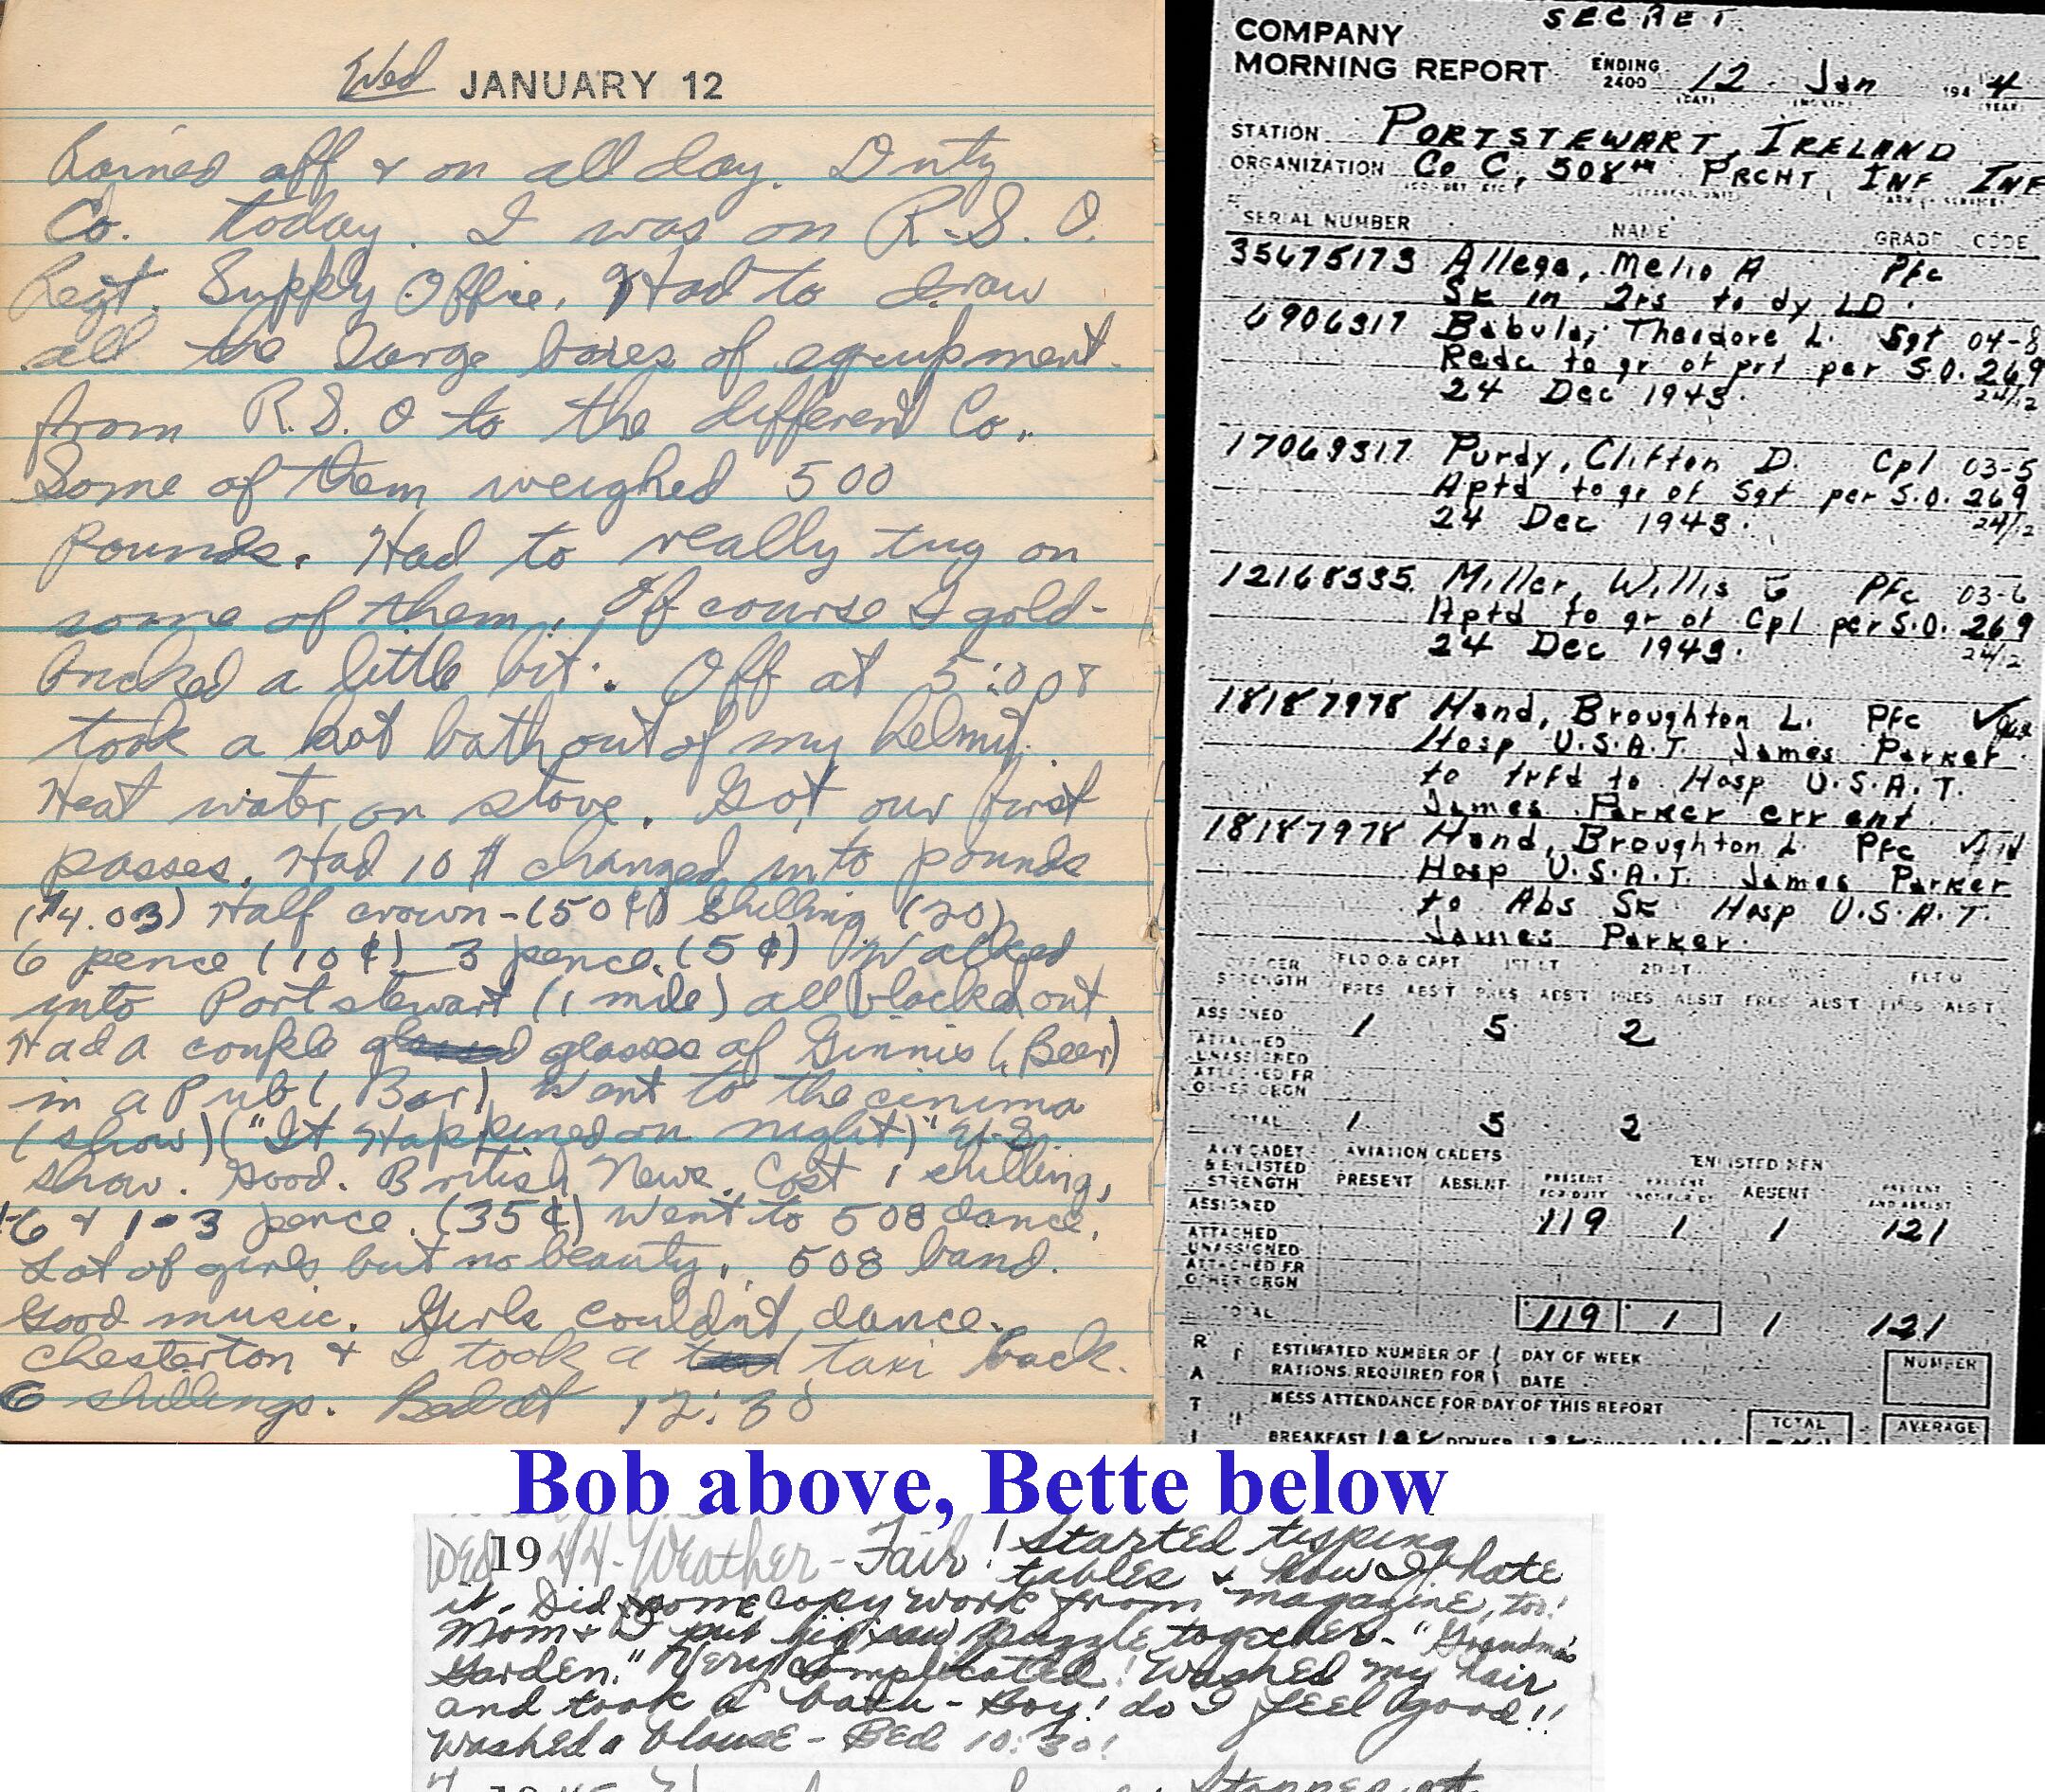 Wed JANUARY 12
Rained off & on all day. Duty
Co. today. I was on R.S.O.
Regt. Supply Office. Had to draw
all the large boxes of equipment
from R.S.O to the different Co.
Some of them weighed 500
pounds. Had to really tug on
some of them. Of course I gold-
bricked a little bit. Off at 5:00 &
took a hot bath out of my helmit.
Heat water on stove. Got our first
passes. Had 10 $ changed into pounds
($4.03) Half crown - (50¢) shilling (20)
6 pence (10¢) 3 pence. (5¢) Walked
into Portstewart (1 mile) all blacked out
Had a couple glasses of Ginnis (Beer)
in a Pub (Bar) Went to the cinima
(show) ("It Happined on night)" U.S.
show. Good. British News. Cost 1 shilling,
1-6 & 1-3 pence. (35¢) Went to 508 dance.
Lot of girls but no beauty. 508 band.
Good music. Girls couldn't dance.
Chesterton & I took a taxi back.
6 shillings. Bed at 12:30
SECRET
COMPANY
MORNING REPORT ENDING 2400 12 Jan 1944
(DAY) (MONTH) (YEAR)
STATION PORTSTEWART, IRELAND
ORGANIZATION Co C, 508th PRCHT INF INF
SERIAL NUMBER NAME GRADE CODE
35675173 Allega, Melio A Pfc
Sk in Qrs to dy LD.
6906317 Babula, Theodore L. Sgt 04-8
Redc to gr of prt per S.O. 269
24 Dec 1943. 24/12
17069317 Purdy, Clifton D. Cpl 03-5
Aptd to gr of Sgt per S.O. 269
24 Dec 1943. 24/12
12168535 Miller, Willis G Pfc 03-6
Aptd to gr of Cpl per S.O. 269
24 Dec 1943. 24/12
18187978 Hand, Broughton L. Pfc
Hosp U.S.A.T. James Parker
to trfd to Hosp U.S.A.T.
James Parker err ent.
18187978 Hand, Broughton L Pfc
Hosp U.S.A.T. James Parker
to Abs Sk Hosp U.S.A.T.
James Parker.
OFFICER STRENGTH FLD O. & CAPT 1ST LT 2D LT FLT O
PRES ABS'T PRES ABS'T PRES ABS'T PRES ABS'T PRES ABS'T
ASSIGNED 1 5 2
ATTACHED
UNASSIGNED
ATTACHED FR
OTHER ORGN
TOTAL 1 5 2
AVN CADET & ENLISTED STRENGTH AVIATION CADETS ENLISTED MEN
PRESENT ABSENT PRESENT FOR DUTY PRESENT NOT FOR DY ABSENT PRESENT AND ABSENT
ASSIGNED 119 1 1 121
ATTACHED
UNASSIGNED
ATTACHED FR
OTHER ORGN
TOTAL 119 1 1 121
ESTIMATED NUMBER OF RATIONS REQUIRED FOR DAY OF WEEK DATE NUMBER
MESS ATTENDANCE FOR DAY OF THIS REPORT
BREAKFAST DINNER TOTAL AVERAGE
Bob above, Bette below
Wed 1944 - Weather - Fair! Started typing
tables & how I hate
it. Did some copy work from magazine, too!
Mom & I put jig saw puzzle together - "Grandma's
Garden." Very complicated! Washed my hair
and took a bath - Boy! do I feel good!!
Washed a blouse - Bed 10:30!